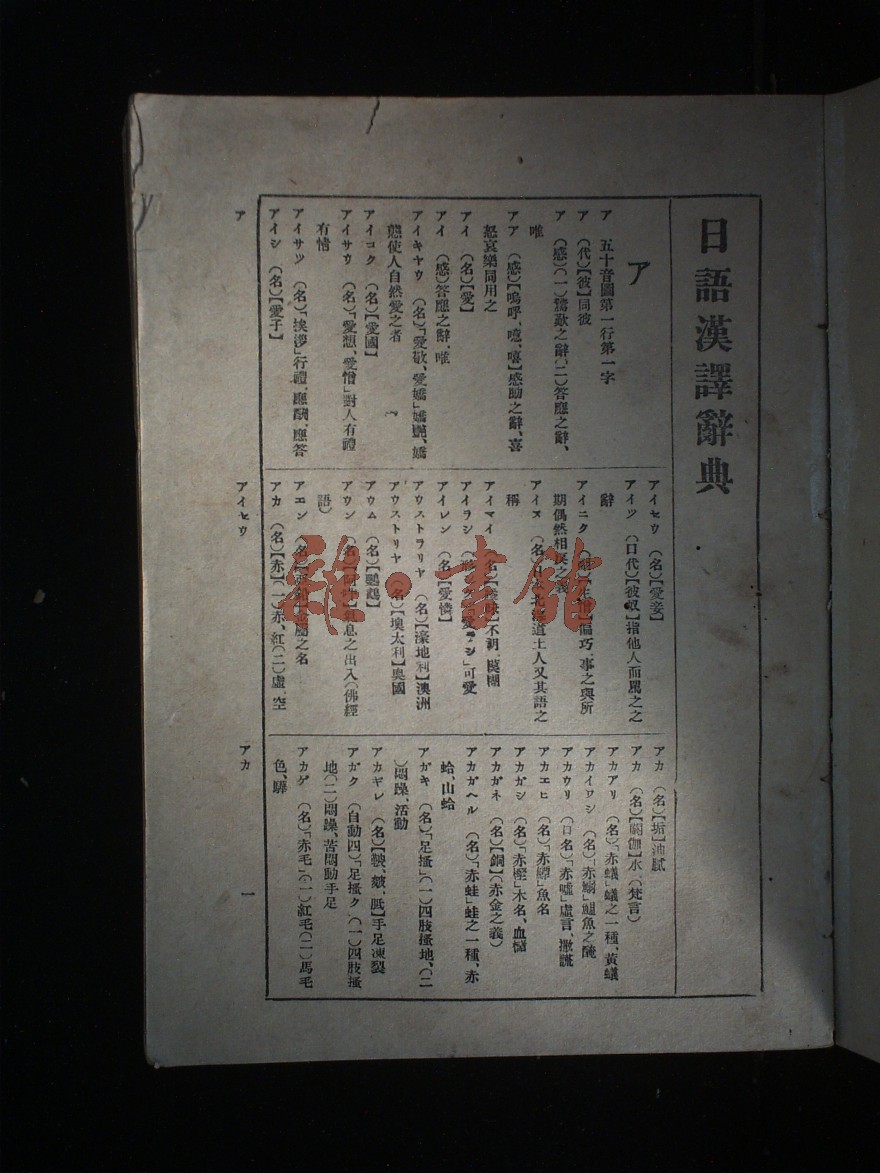 日語漢譯辭典
ア
ア 五十音圖第一行第一字
ア (代)【彼】同彼
ア (感)(一)驚歎之辭(二)答應之辭、
唯
アア (感)【嗚呼、噫、嘻】感動之辭、喜
怒哀樂同用之
アイ (名)【愛】
アイ (感)答應之辭、唯
アイキヤウ (名)「愛敬、愛嬌」嬌艷、嬌
態使人自然愛之者
アイコク (名)【愛國】
アイサウ (名)「愛想、愛憎」對人有禮
有情
アイサツ (名)「挨拶」行禮、應酬、應答
アイシ (名)【愛子】
アイセウ (名)【愛妾】
アイツ (口代)【彼奴】指他人而罵之之
辭
アイニク 偏巧、事之與所
期偶然相戾之義
アイヌ (名)日本北海道土人又其語之
稱
アイマイ (名)【曖昧】不明、模糊
アイラシ 可愛
アイレン (名)【愛憐】
アウストラリヤ (名)【濠地利】澳洲
アウストリヤ (名)【墺太利】奧國
アウム (名)【鸚鵡】
アウン (名) 息之出入(佛經
語)
アエン (名) 金屬之名
アカ (名)【赤】(一)赤、紅(二)虛、空
アカ (名)【垢】油膩
アカ (名)【閼伽】水、(梵言)
アカアリ (名)「赤蟻」蟻之一種、黃蟻
アカイワシ (名)「赤鰯」鰮魚之醃
アカウリ (口名)「赤噓」虛言、撒謊
アカエヒ (名)「赤鱏」魚名
アカガシ (名)「赤樫」木名、血櫧
アカガネ (名)【銅】(赤金之義)
アカガヘル (名)「赤蛙」蛙之一種、赤
蛤、山蛤
アガキ (名)「足搔」(一)四肢搔地、(二
)悶躁、活動
アカギレ (名)【皸、皴、胝】手足凍裂
アガク (自動四)「足搔ク」(一)四肢搔
地(二)悶躁、苦悶動手足
アカゲ (名)「赤毛」(一)紅毛(二)馬毛
色、騂
ア
アイセウ
アカ
一
雜·書館